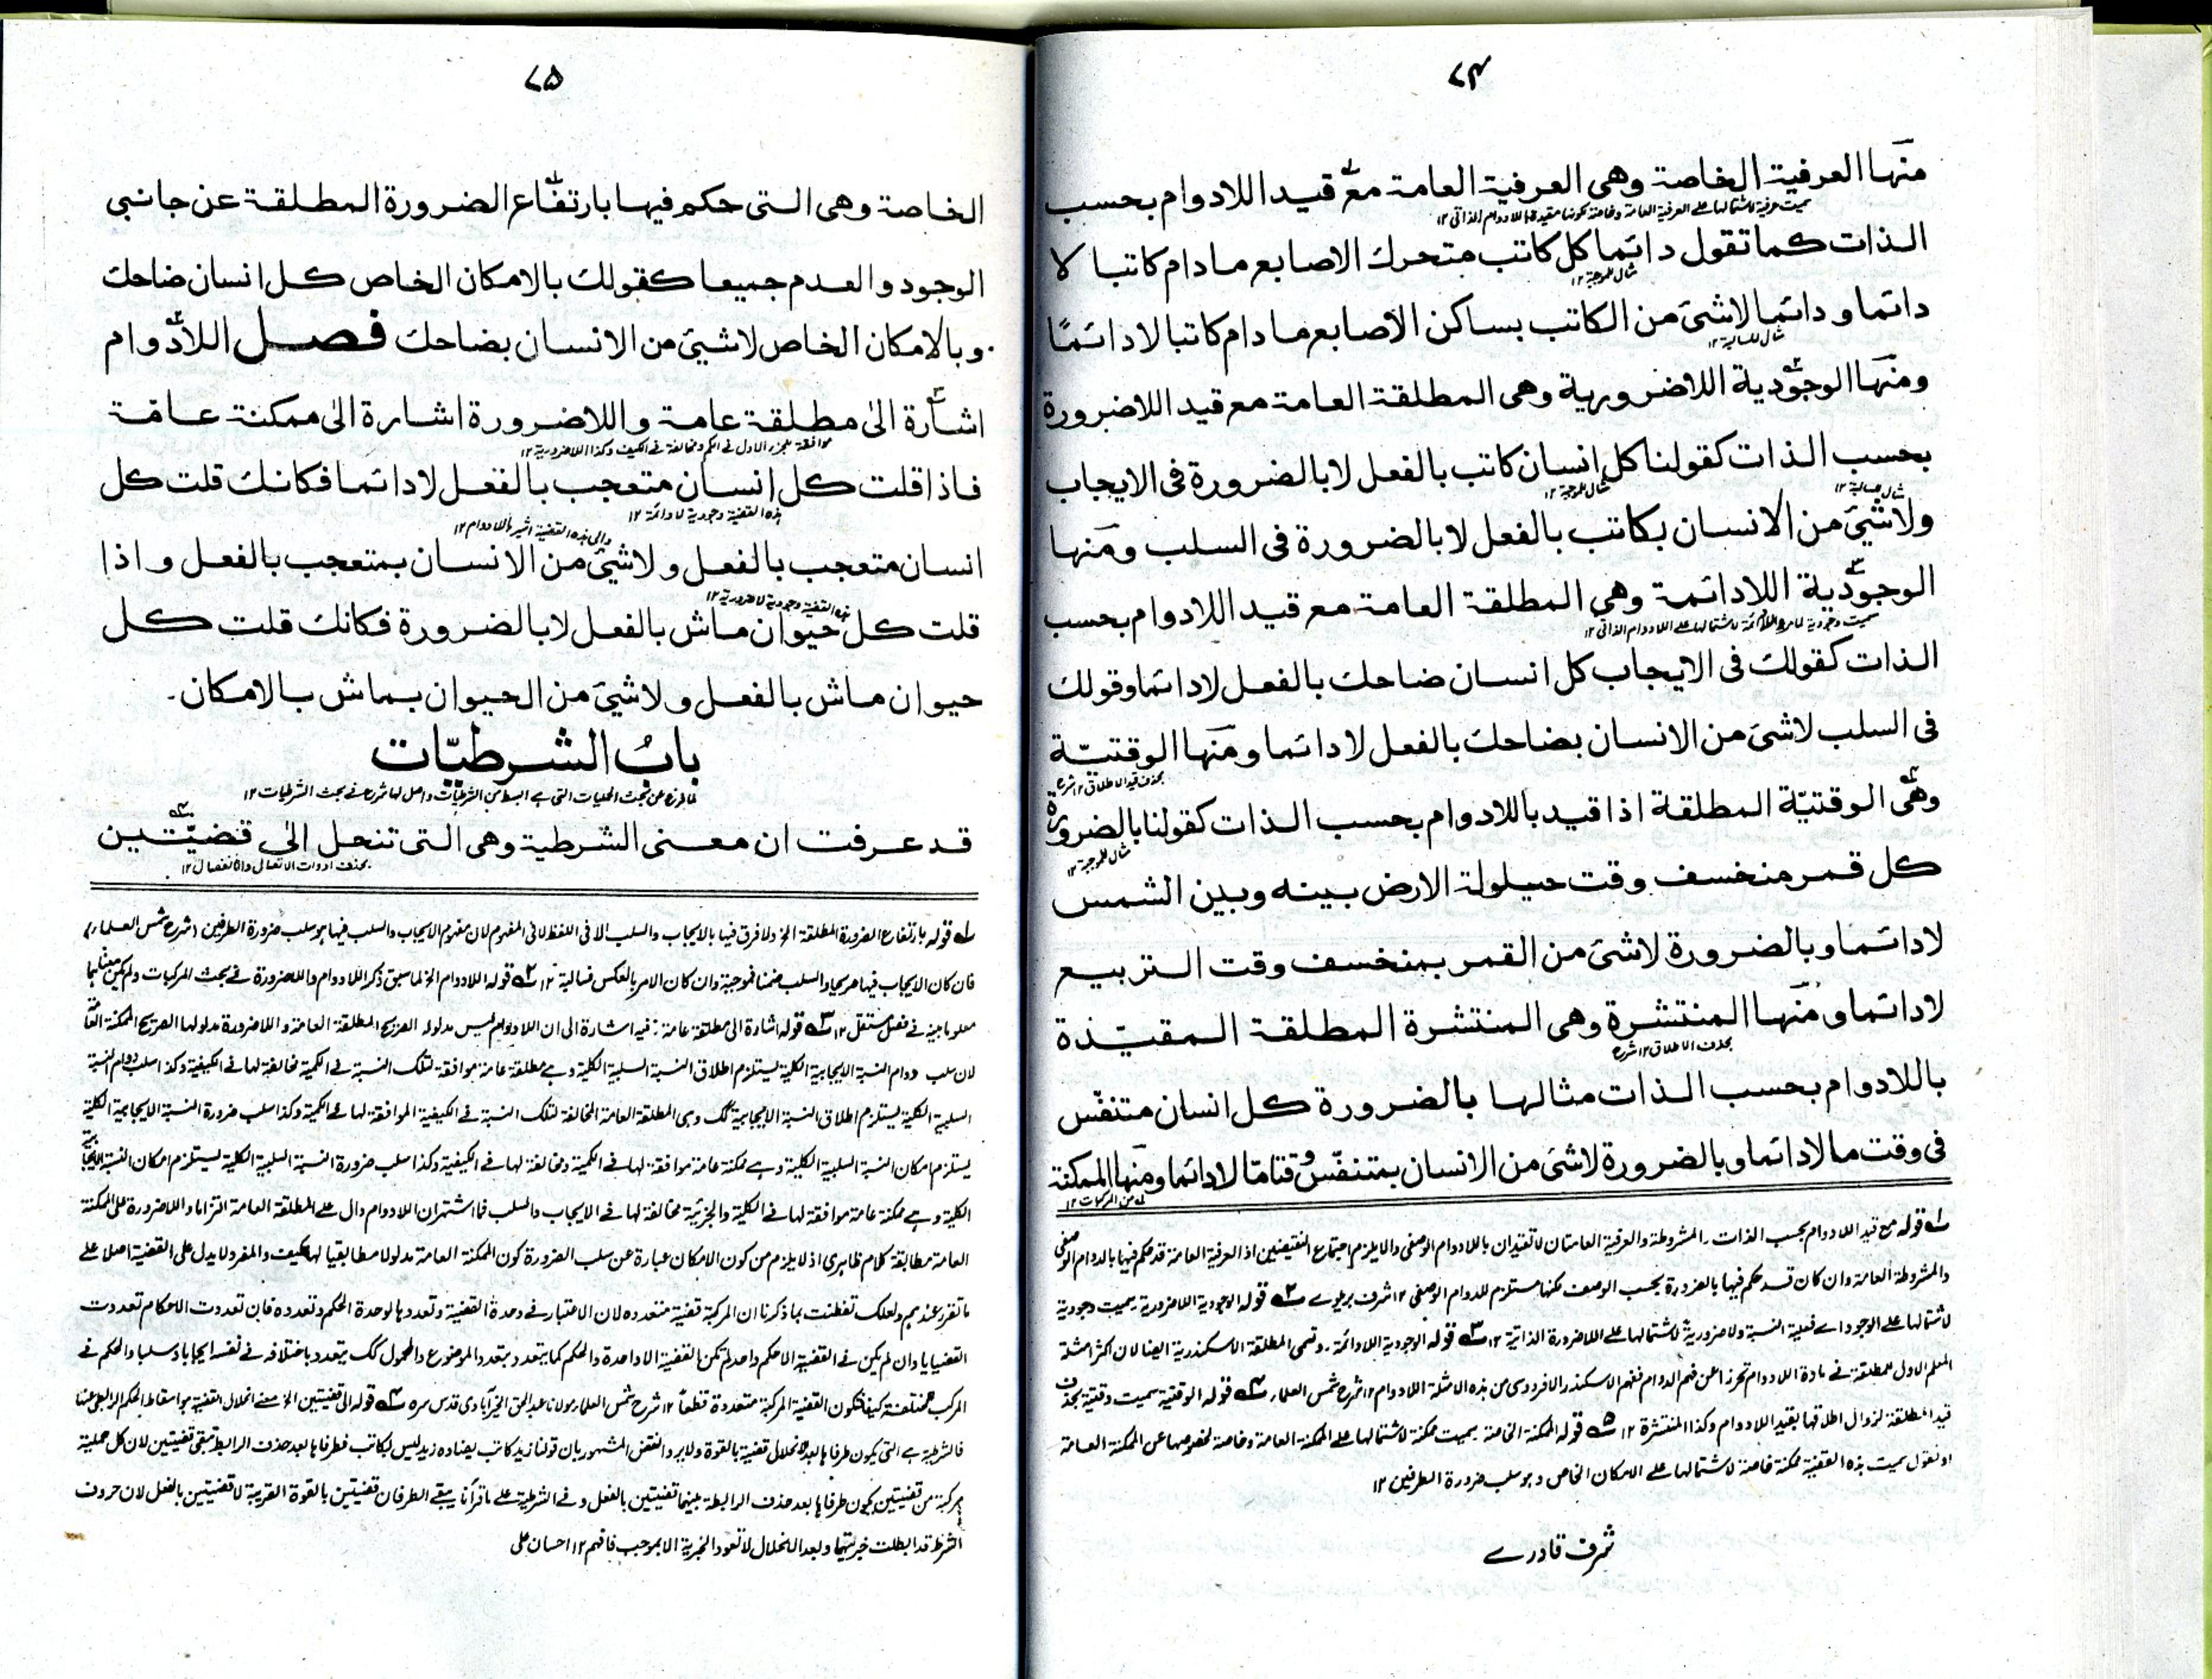 ۷۴
منها العرفية الخاصة وهى العرفية العامة مع قيد اللادوام بحسب
سميت عرفية لاشتمالها على العرفية العامة وخاصة لكونها مقيدة باللادوام الذاتى ١٢
الذات كما تقول دائما كل كاتب متحرك الاصابع مادام كاتبا لا
مثال للموجبة ١٢
دائما ودائما لاشئ من الكاتب بساكن الاصابع مادام كاتبا لا دائمًا
مثال للسالبة ١٢
ومنها الوجودية اللاضرورية وهى المطلقة العامة مع قيد اللاضرورة
بحسب الذات كقولنا كل انسان كاتب بالفعل لا بالضرورة فى الايجاب
مثال للموجبة ١٢
مثال سالبة ١٢
ولاشئ من الانسان بكاتب بالفعل لا بالضرورة فى السلب ومنها
الوجودية اللادائمة وهى المطلقة العامة مع قيد اللادوام بحسب
سميت وجودية لاشتمالها على اللادوام الذاتى ١٢
الذات كقولك فى الايجاب كل انسان ضاحك بالفعل لا دائما وقولك
فى السلب لاشئ من الانسان بضاحك بالفعل لا دائما ومنها الوقتيّة
بحذف قيد الاطلاق ١٢ شرح
وهى الوقتيّة المطلقة اذا قيد باللادوام بحسب الذات كقولنا بالضرورة
مثال للموجبة ١٢
كل قمر منخسف وقت حيلولة الارض بينه وبين الشمس
لا دائما وبالضرورة لاشئ من القمر بمنخسف وقت التربيع
لا دائما ومنها المنتشرة وهى المنتشرة المطلقة المقيّدة
بحذف الاطلاق ١٢ شرح
باللادوام بحسب الذات مثالها بالضرورة كل انسان متنفّس
فى وقت ما لا دائما وبالضرورة لاشئ من الانسان بمتنفّس وقتا ما لا دائما ومنها الممكنة
من المركبات ١٢
۱ قوله مع قيد اللادوام بحسب الذات۔ المشروطة والعرفية العامتان لا تقيدان باللادوام الوصفى والا يلزم اجتماع النقيضين اذ العرفية العامة قد حكم فيها بالدوام الوصفى
والمشروطة العامة وان كان قد حكم فيها بالضرورة بحسب الوصف لكنها مستلزم للدوام الوصفى ١٢ شرف ۲ قوله الوجودية اللاضرورية۔ سميت وجودية
لاشتمالها على الوجود اے فعلية النسبة ولا ضرورية لاشتمالها على اللاضرورة الذاتية ١٢ ۳ قوله الوجودية اللادائمة۔ وتسمى المطلقة الاسكندرية ايضا لان اكثر امثلة
المعلم الاول للمطلقة فى مادة اللادوام تحرزا عن فهم الدوام ففهم الاسكندر الافردوسى من هذه الامثلة اللادوام ١٢ شرح شمس العلماء ۴ قوله الوقتية سميت وقتية بحذف
قيد المطلقة لزوال اطلاقها بقيد اللادوام وكذا المنتشرة ١٢ ۵ قوله الممكنة الخاصة۔ سميت ممكنة لاشتمالها على الممكنة العامة وخاصة لخصوصها عن الممكنة العامة
او نقول سميت هذه القضية ممكنة خاصة لاشتمالها على الامكان الخاص وهو سلب ضرورة الطرفين ١٢
شرف قادرے
۷۵
الخاصة وهى التى حكم فيها بارتفاع الضرورة المطلقة عن جانبى
الوجود والعدم جميعا كقولك بالامكان الخاص كل انسان ضاحك
وبالامكان الخاص لاشيئ من الانسان بضاحك فصل اللادوام
اشارة الى مطلقة عامة واللاضرورة اشارة الى ممكنة عامّة
موافقة للجزء الاول فى الكم ومخالفة فى الكيف وكذا اللاضرورية ١٢
فاذا قلت كل انسان متعجب بالفعل لا دائما فكانك قلت كل
هذه القضية وجودية لا دائمة ١٢
والى هذه القضية اشير باللادوام ١٢
انسان متعجب بالفعل ولاشيئ من الانسان بمتعجب بالفعل واذا
هذه القضية وجودية لا ضرورية ١٢
قلت كل حيوان ماش بالفعل لا بالضرورة فكانك قلت كل
حيوان ماش بالفعل ولاشيئ من الحيوان بماش بالامكان۔
بابُ الشرطيّات
لما فرغ عن بحث الحمليات التى هے ابسط من الشرطيات واصل لها شرع فى بحث الشرطيات ١٢
قد عرفت ان معنى الشرطية وهى التى تنحل الى قضيّتين
بحذف ادوات الاتصال والانفصال ١٢
۱ قوله بارتفاع الضرورة المطلقة الخ ولا فرق فيها بالايجاب والسلب الا فى اللفظ لا فى المفهوم لان مفهوم الايجاب والسلب فيها هو سلب ضرورة الطرفين (شرح شمس العلماء)
فان كان الايجاب فيها صريحا والسلب ضمنا فموجبة وان كان الامر بالعكس فسالبة ١٢ ۲ قوله اللادوام الخ لما سبق ذكر اللادوام واللاضرورة فى بحث المركبات ولم يكن معناهما
معلوما بينه فى فصل مستقل ١٢ ۳ قوله اشارة الى مطلقة عامة: فيه اشارة الى ان اللادوام ليس مدلوله الصريح المطلقة العامة واللاضرورة مدلولها الصريح الممكنة العامة
لان سلب دوام النسبة الايجابية الكلية يستلزم اطلاق النسبة السلبية الكلية وهے مطلقة عامة موافقة لتلك النسبة فى الكمية مخالفة لها فى الكيفية وكذا سلب دوام النسبة
السلبية الكلية يستلزم اطلاق النسبة الايجابية وهى المطلقة العامة المخالفة لتلك النسبة فى الكيفية الموافقة لها فى الكمية وكذا سلب ضرورة النسبة الايجابية الكلية
يستلزم امكان النسبة السلبية الكلية وهے ممكنة عامة موافقة لها فى الكمية ومخالفة لها فى الكيفية وكذا سلب ضرورة النسبة السلبية الكلية يستلزم امكان النسبة الايجابية
الكلية وهے ممكنة عامة موافقة لها فى الكلية والجزئية مخالفة لها فى الايجاب والسلب فما اشتهر ان اللادوام دال على المطلقة العامة التزاما واللاضرورة على الممكنة
العامة مطابقة كلام ظاهرى اذ لا يلزم من كون الامكان عبارة عن سلب الضرورة كون الممكنة العامة مدلولا مطابقيا لها كيف والمفرد لا يدل على القضية اصلا على
ما تقرر عندهم ولعلك تفطنت بما ذكرنا ان المركبة قضية متعددة لان الاعتبار فى وحدة القضية وتعددها لوحدة الحكم وتعدده فان تعددت الاحكام تعددت
القضايا وان لم يكن فى القضية الا حكم واحد لم تكن القضية الا واحدة والحكم كما يتعدد بتعدد الموضوع والمحمول كك يتعدد باختلافه فى نفسه ايجابا وسلبا والحكم فى
المركب مختلفة كيفا فتكون القضية المركبة متعددة قطعاً ١٢ شرح شمس العلماء مولانا عبد الحق الخيرآبادى قدس سره ۴ قوله الى قضيتين الخ معنى انحلال القضية هو اسقاط الحكم الرابطى عنها
فالشرطية هے التى يكون طرفاها بعد انحلال قضية بالقوة ولا يرد النقض المشهور بان قولنا زيد كاتب يضاده زيد ليس بكاتب فطرفاها بعد حذف الرابط تبقى قضيتين لان كل حملية
مركبة من قضيتين يكون طرفاها بعد حذف الرابطة بينهما قضيتين بالفعل وفى الشرطية على ما قرأنا يبقے الطرفان قضيتين بالقوة القريبة لا قضيتين بالفعل لان حروف
الشرط قد ابطلت خبريتهما وبعد الانحلال لا تعود الخبرية الا بموجب فافهم ١٢ احسان على